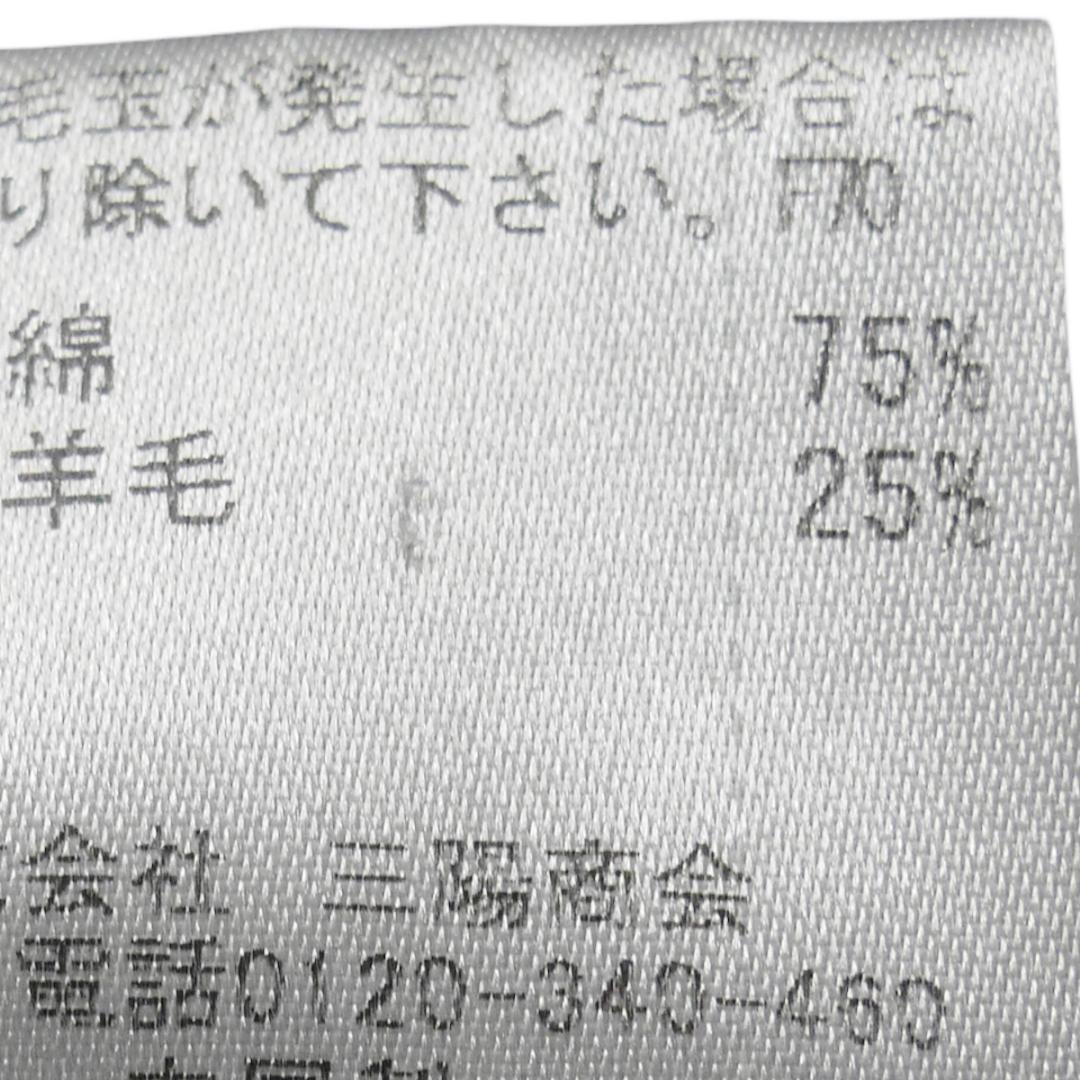 毛玉が発生した場合は
り除いて下さい。F70
綿 75%
羊毛 25%
会社 三陽商会
電話0120-340-460